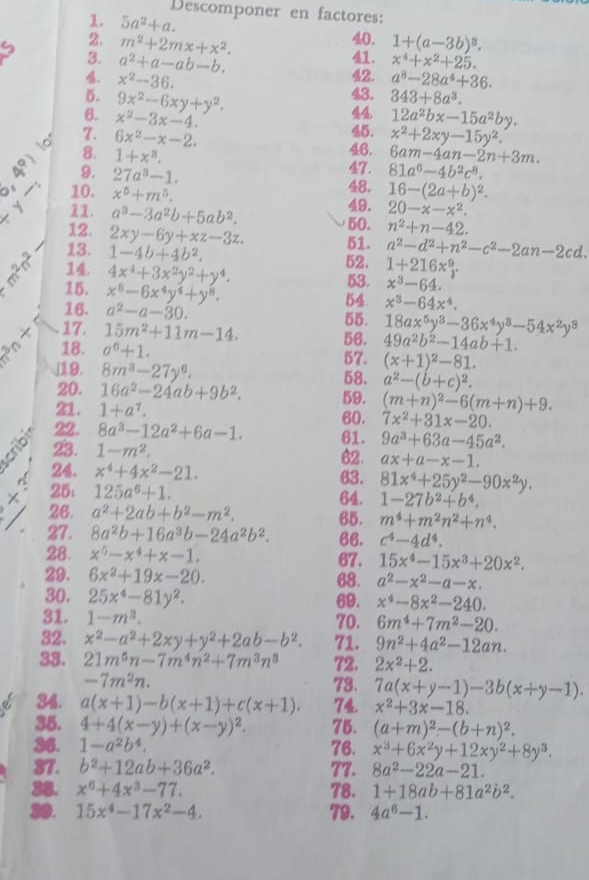 Descomponer en factores:
1. 5a²+a.
2. m²+2mx+x².
3. a²+a—ab—b.
4. x²—36.
5. 9x²—6xy+y².
6. x²—3x—4.
7. 6x²—x—2.
8. 1+x³.
9. 27a³—1.
10. x⁵+m⁵.
11. a³—3a²b+5ab².
12. 2xy—6y+xz—3z.
13. 1—4b+4b².
14. 4x⁴+3x²y²+y⁴.
15. x⁸—6x⁴y⁴+y⁸.
16. a²—a—30.
17. 15m²+11m—14.
18. a⁶+1.
19. 8m³—27y⁶.
20. 16a²—24ab+9b².
21. 1+a⁷.
22. 8a³—12a²+6a—1.
23. 1—m².
24. x⁴+4x²—21.
25. 125a⁶+1.
26. a²+2ab+b²—m².
27. 8a²b+16a³b—24a²b².
28. x⁵—x⁴+x—1.
29. 6x²+19x—20.
30. 25x⁴—81y².
31. 1—m³.
32. x²—a²+2xy+y²+2ab—b².
33. 21m⁵n—7m⁴n²+7m³n³
—7m²n.
34. a(x+1)—b(x+1)+c(x+1).
35. 4+4(x—y)+(x—y)².
36. 1—a²b⁴.
37. b²+12ab+36a².
38. x⁶+4x³—77.
39. 15x⁴—17x²—4.
40. 1+(a—3b)³.
41. x⁴+x²+25.
42. a⁸—28a⁴+36.
43. 343+8a³.
44. 12a²bx—15a²by.
45. x²+2xy—15y².
46. 6am—4an—2n+3m.
47. 81a⁶—4b²c⁸.
48. 16—(2a+b)².
49. 20—x—x².
50. n²+n—42.
51. a²—d²+n²—c²—2an—2cd.
52. 1+216x⁹.
53. x³—64.
54. x³—64x⁴.
55. 18ax⁵y³—36x⁴y³—54x²y⁸
56. 49a²b²—14ab+1.
57. (x+1)²—81.
58. a²—(b+c)².
59. (m+n)²—6(m+n)+9.
60. 7x²+31x—20.
61. 9a³+63a—45a².
62. ax+a—x—1.
63. 81x⁴+25y²—90x²y.
64. 1—27b²+b⁴.
65. m⁴+m²n²+n⁴.
66. c⁴—4d⁴.
67. 15x⁴—15x³+20x².
68. a²—x²—a—x.
69. x⁴—8x²—240.
70. 6m⁴+7m²—20.
71. 9n²+4a²—12an.
72. 2x²+2.
73. 7a(x+y—1)—3b(x+y—1).
74. x²+3x—18.
75. (a+m)²—(b+n)².
76. x³+6x²y+12xy²+8y³.
77. 8a²—22a—21.
78. 1+18ab+81a²b².
79. 4a⁶—1.